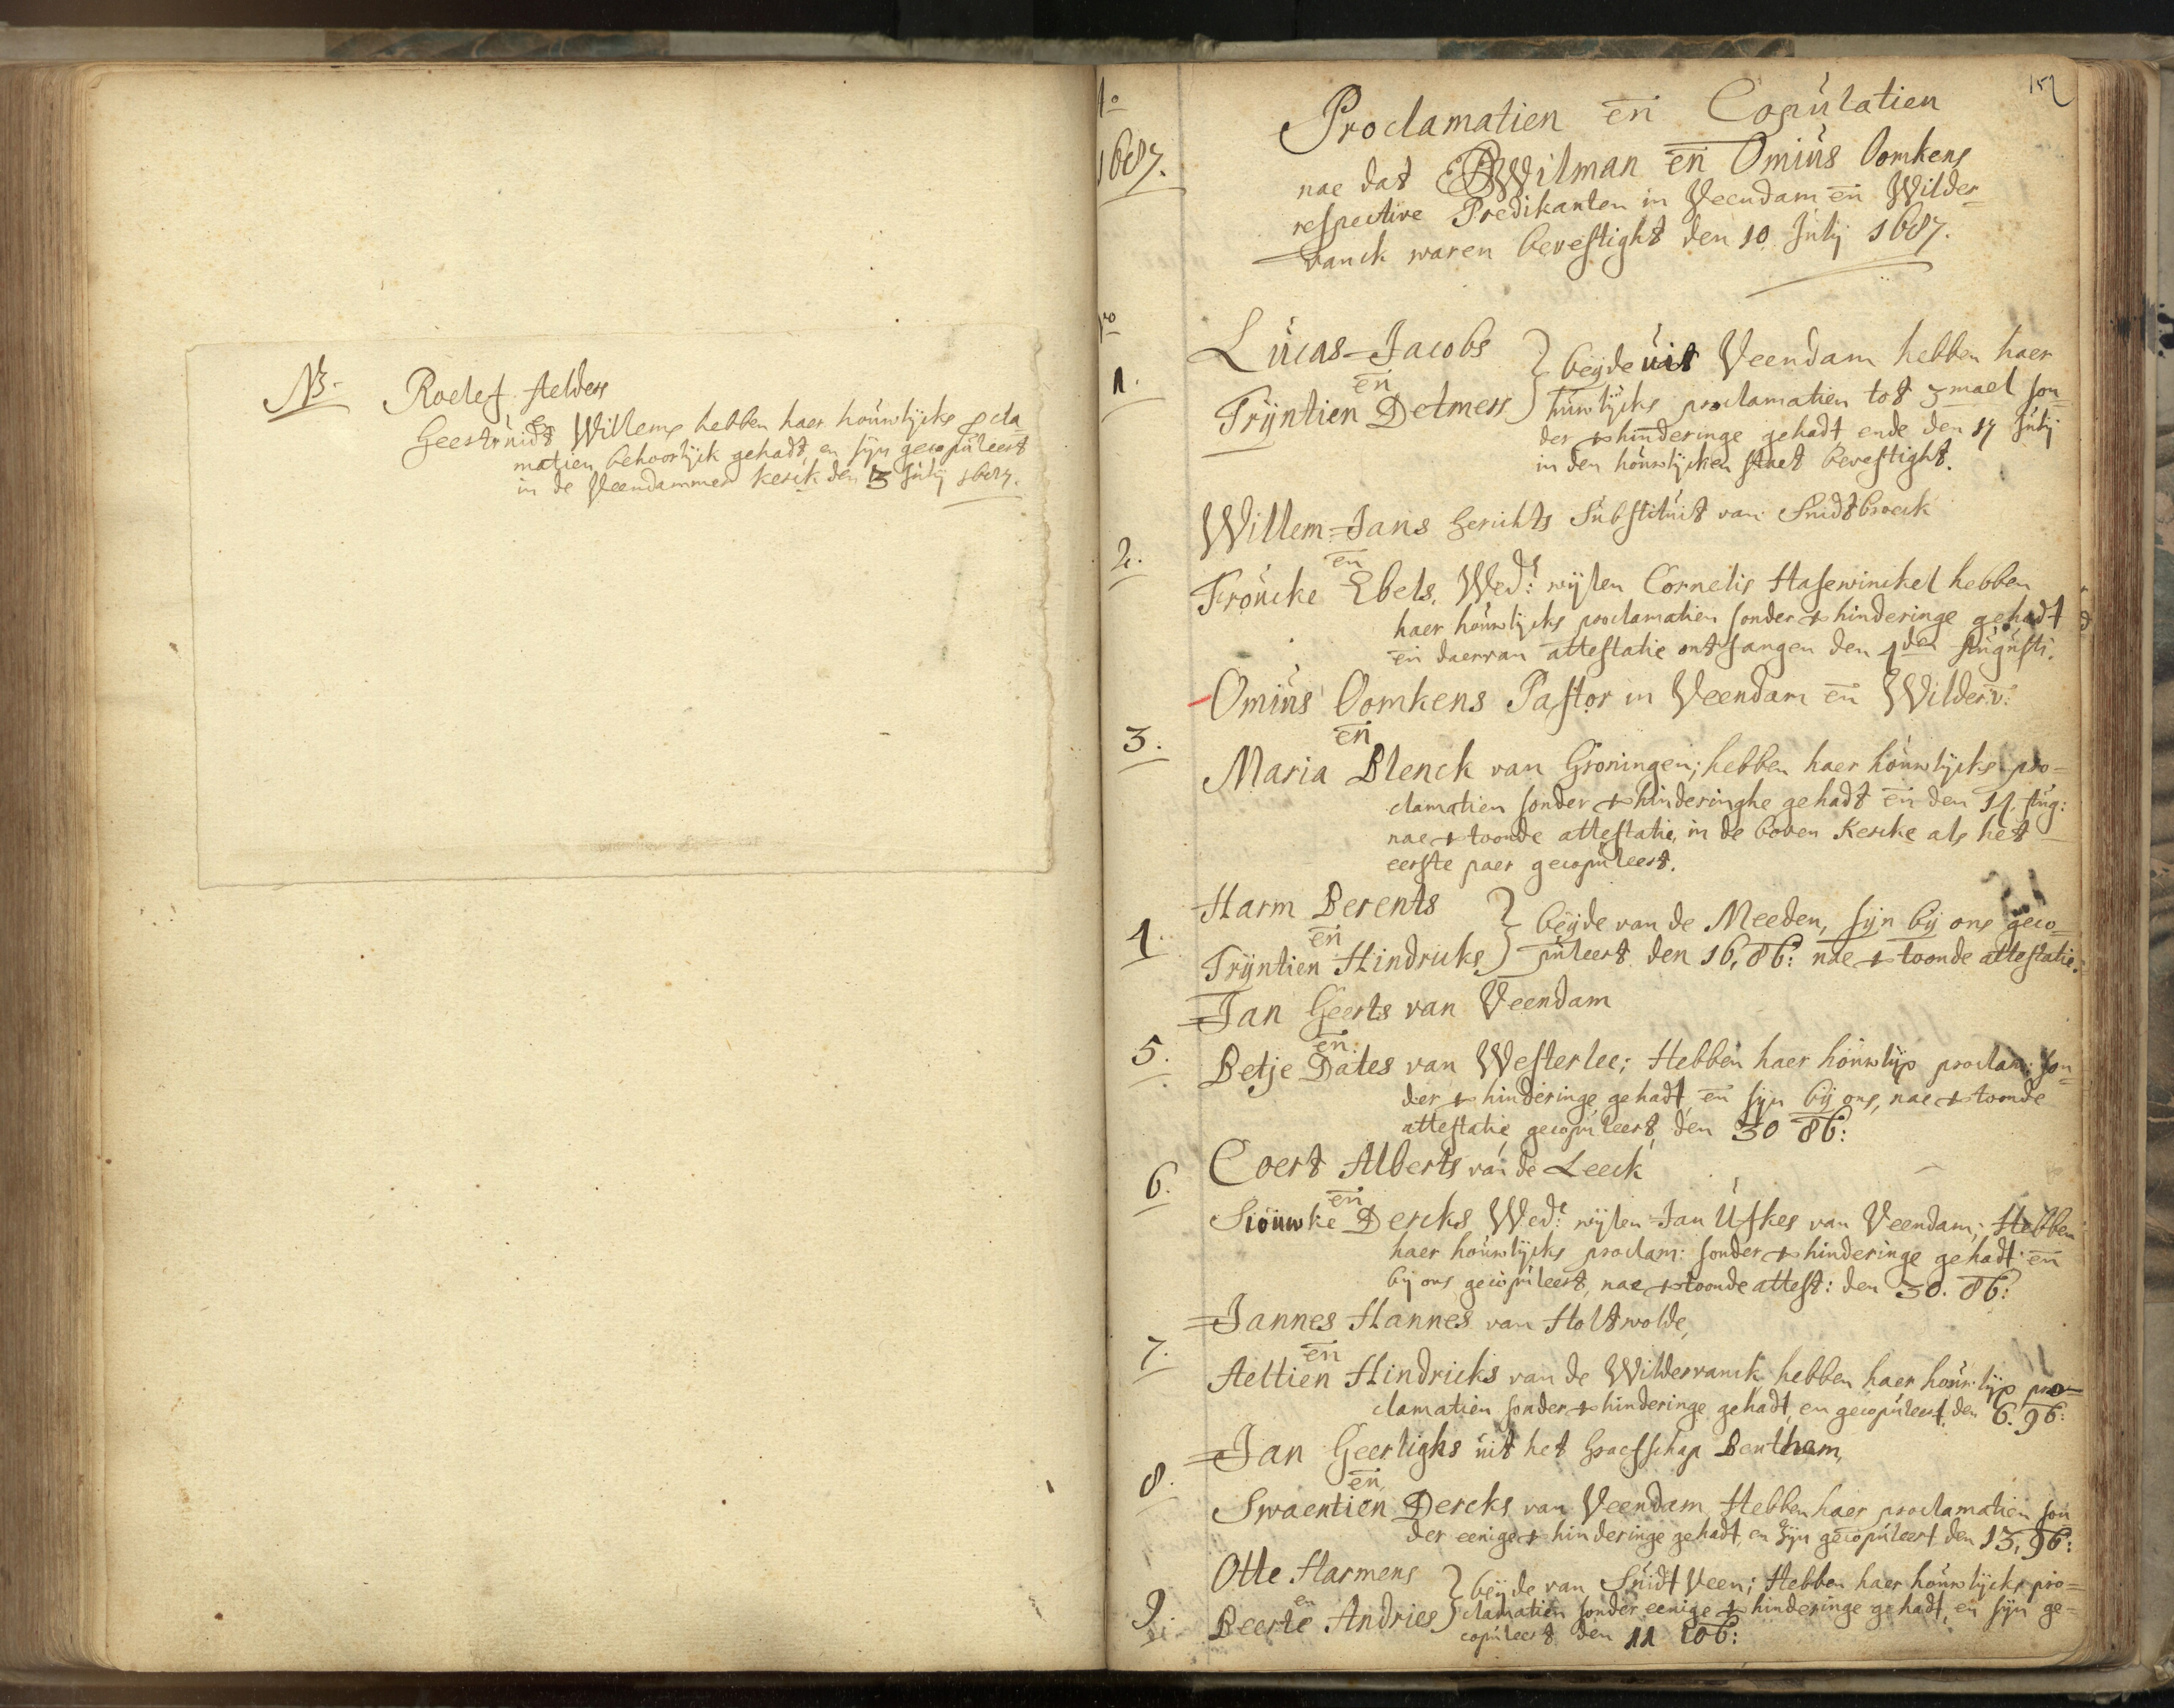 NB. Roelef Aelders
en
Geestruidt Willems hebben haer houwlijcks ꝓcla
matien behoorlijck gehadt, en sijn gecopuleert
in de Veendammer kerck den 3 Julij 1687.
152
Ao
1687.
Proclamatien en̄ Copulatien
nae dat Wilman en̄ Omius Oomkens
respective Predikanten in Veendam en̄ Wilder=
vanck waren bevestight den 10 Julij 1687.
1.
Lucas Jacobs
en̄
Trijntien Detmers
beijde uit Veendam hebben haer
huwlijcks proclamatien tot 3 mael son=
der ꝟhinderinge gehadt ende den 17 Julij
in den houwlijcken staet bevestight.
2.
Willem Jans Gerichts Substituit van Suidtbroeck
en̄
Froucke Ebels, Wed:e wijlen Cornelis Hasewinckel hebben
haer houwlijcks proclamatien sonder ꝟhinderinge gehadt
en̄ daervan attestatie ontfangen den 4den Augusti.
3.
Omius Oomkens Pastor in Veendam en̄ Wilderv:
en̄
Maria Blenck van Groningen; hebben haer houwlijcks pro=
clamatien sonder ꝟhinderinghe gehadt en̄ den 14. Aug:
nae ꝟtoonde attestatie, in de boven Kercke als het
eerste paer gecopuleert.
4.
Harm Berents
en̄
Trijntien Hindricks
beijde van de Meeden, sijn bij ons geco=
puleert den 16, 8b: nae ꝟtoonde attestatie.
5.
Jan Geerts van Veendam
en̄
Betje Dates van Westerlee; Hebben haer houwlijx proclam: son=
der ꝟhinderinge gehadt, en̄ sijn bij ons, nae ꝟtoonde
attestatie gecopuleert, den 30 8b:
6.
Coert Alberts van de Leeck
en̄
Siouwke Dercks Wed:e wijlen Jan Ufkes van Veendam; Hebben
haer houwlijcks proclam: sonder ꝟhinderinge gehadt en̄
bij ons gecopuleert, nae ꝟtoonde attest: den 30. 8b:
7.
Jannes Hannes van Holtwolde,
en̄
Aeltien Hindricks van de Wildervanck hebben haer houwlijx pro=
clamatien sonder ꝟhinderinge gehadt, en gecopuleert den 6. 9b:
8.
Jan Geerlighs uit het Graefschap Benthem,
en̄
Swaentien Dercks van Veendam, Hebben haer proclamatien son
der eenige ꝟhinderinge gehadt, en sijn gecopuleert den 13, 9b:
9.
Otte Harmens
en
Beerte Andries
beijde van Suidt Veen; Hebben haer houwlijcks pro=
clamatien sonder eenige ꝟhinderinge gehadt, en sijn ge=
copuleert den 11 10b: